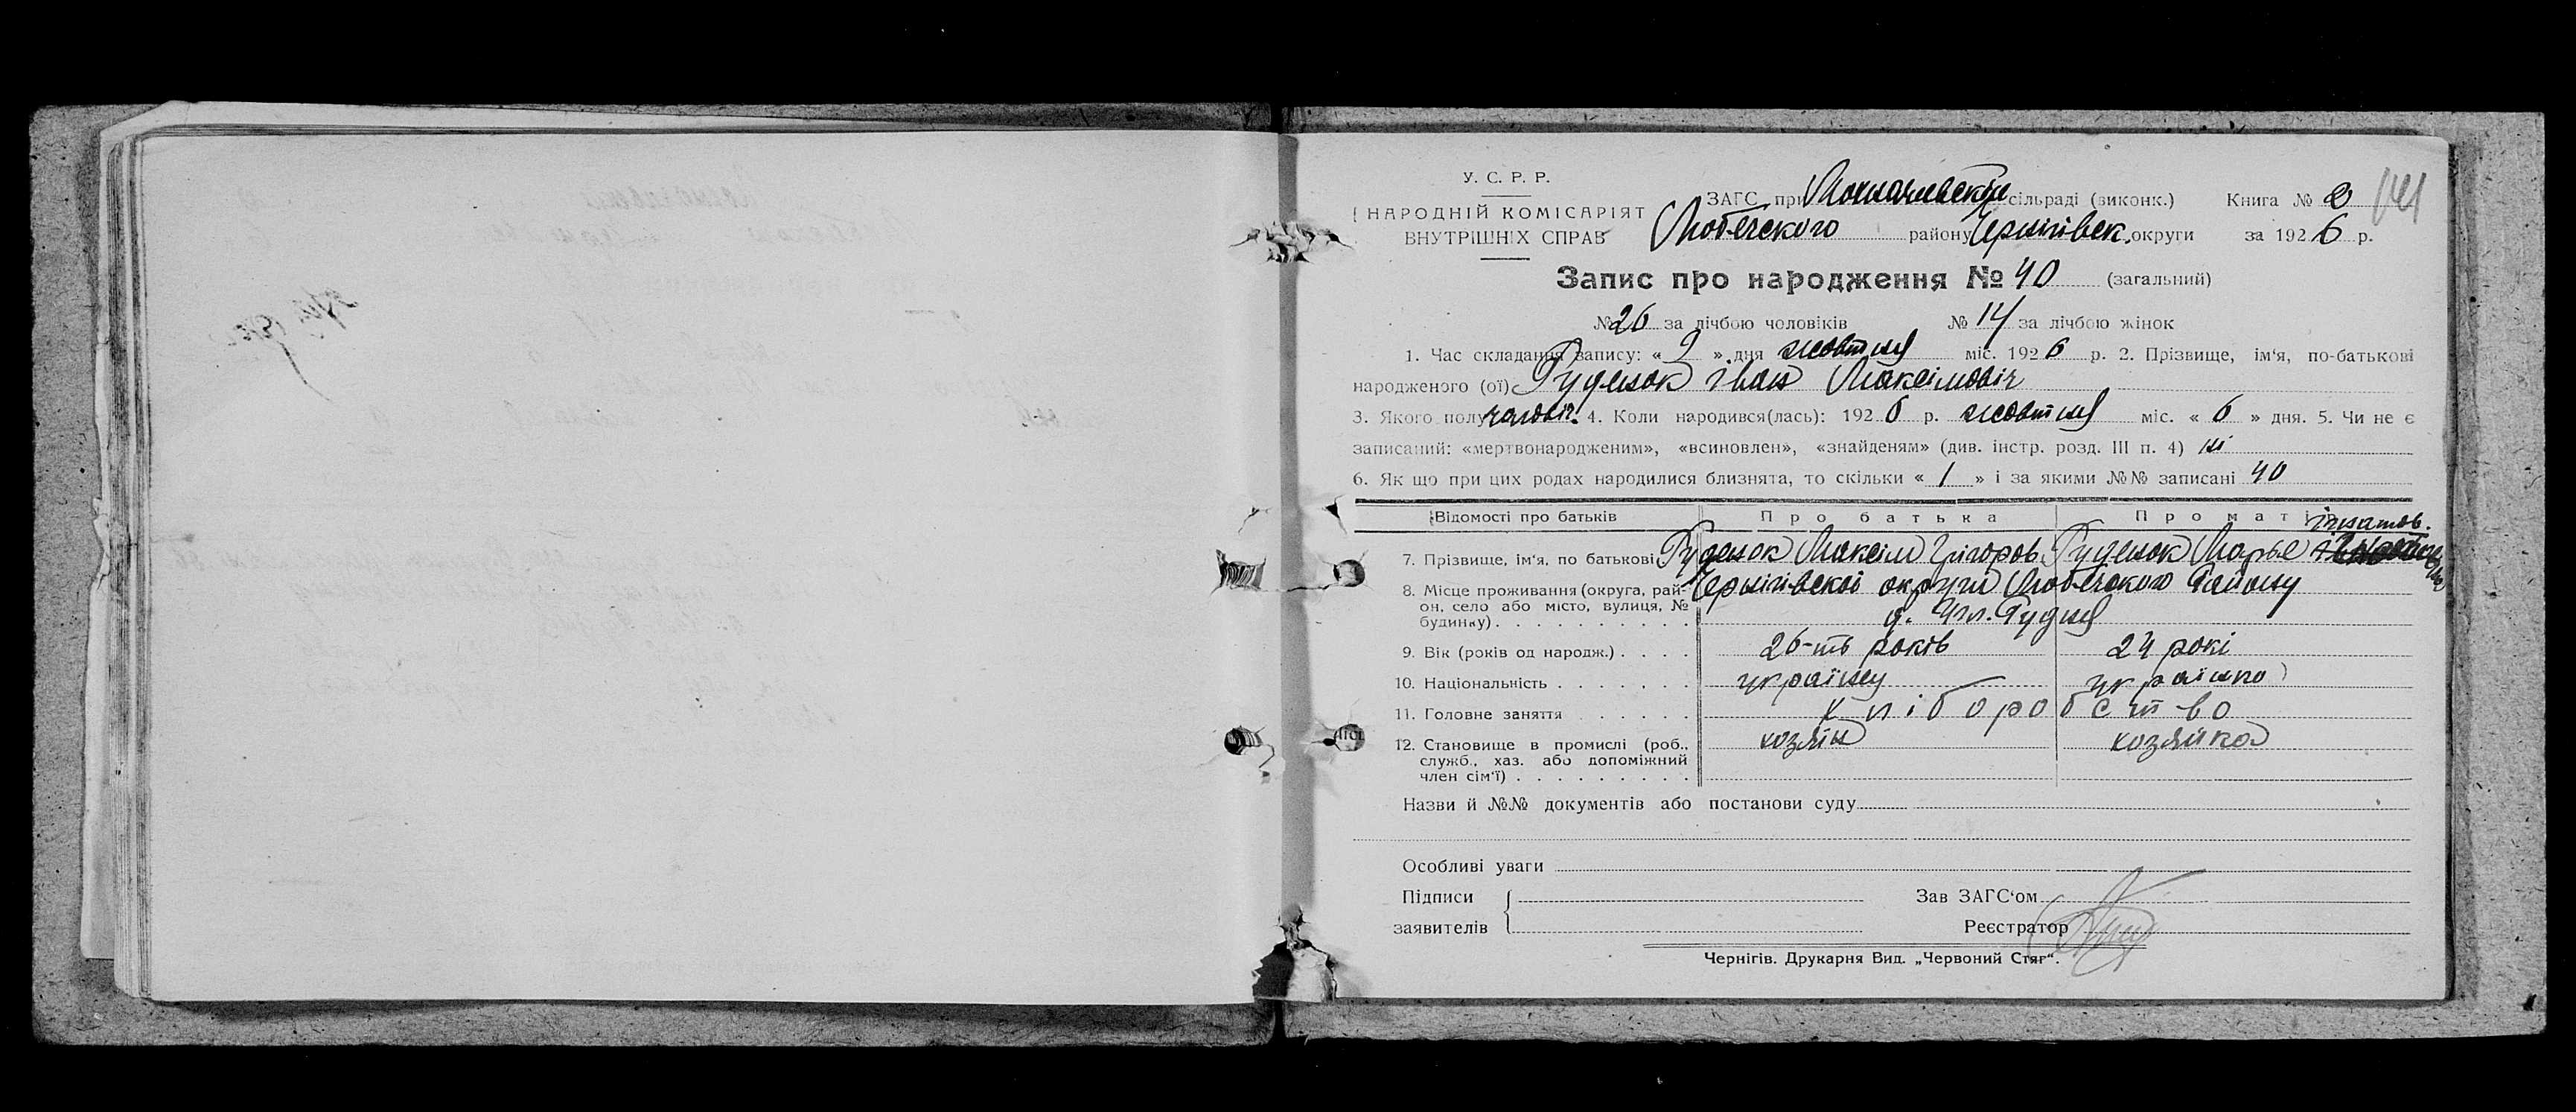 У. С. Р. Р.
НАРОДНІЙ КОМІСАРІЯТ
ВНУТРІШНІХ СПРАВ
ЗАГС при сільраді (виконк.) Книга № 2 141
Любечского району Чернігівск. округи за 1926 р.
Запис про народження № 40 (загальний)
№ 26 за лічбою чоловіків № 14 за лічбою жінок
1. Час складання запису: « 9 » дня жовтня міс. 1926 р. 2. Прізвище, ім'я, по-батькові
народженого (ої) Руденок Іван Максімовіч
3. Якого полу чоловіч. 4. Коли народився(лась): 1926 р. жовтня міс. « 6 » дня. 5. Чи не є
записаний: «мертвонародженим», «всиновлен», «знайденям» (див. інстр. розд. III п. 4) ні
6. Як що при цих родах народилися близнята, то скільки « 1 » і за якими №№ записані 40
Відомості про батьків Про батька Про матір
7. Прізвище, ім'я, по батькові Руденок Максім Грігоров. Руденок Марье ігнатов.
8. Місце проживання (округа, рай- Чернігівскоі округи Любечского Району
он, село або місто, вулиця, № д. Рудня
будинку)
9. Вік (років од народж.) 26-ть років 24 рокі
10. Національність українец українка
11. Головне заняття хліборобство
12. Становище в промислі (роб., хозяін хозяйка
служб., хаз. або допоміжний
член сім'ї)
Назви й №№ документів або постанови суду
Особливі уваги
Підписи Зав ЗАГС'ом
заявителів Реєстратор
Чернігів. Друкарня Вид. „Червоний Стяг“.